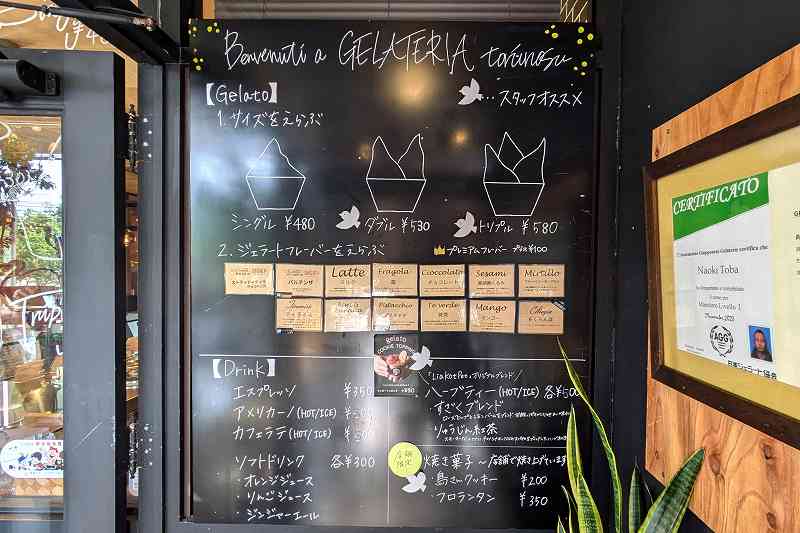 Benvenuti a GELATERIA
【Gelato】
…スタッフオススメ
1.サイズをえらぶ
シングル ¥480
ダブル ¥530
トリプル ¥580
2.ジェラートフレーバーをえらぶ
プレミアムフレーバー プラス¥100
Latte
Fragola
Cioccolato
チョコレート
Sesami
Mirtillo
Pistacchio
Te verde
Mango
マンゴー
Gelato
COOKIE TOPPING
【Drink】
エスプレッソ ¥350
アメリカーノ(HOT/ICE)
カフェラテ(HOT/ICE)
ソフトドリンク 各¥300
・オレンジジュース
・りんごジュース
・ジンジャーエール
オリジナルブレンド
ハーブティー(HOT/ICE) 各¥500
すざくブレンド
りゅうじん紅茶
店舗
限定
焼き菓子〜店舗で焼き上げています
・鳥さんクッキー ¥200
・フロランタン ¥350
CERTIFICATO
Naoki Toba
AGG